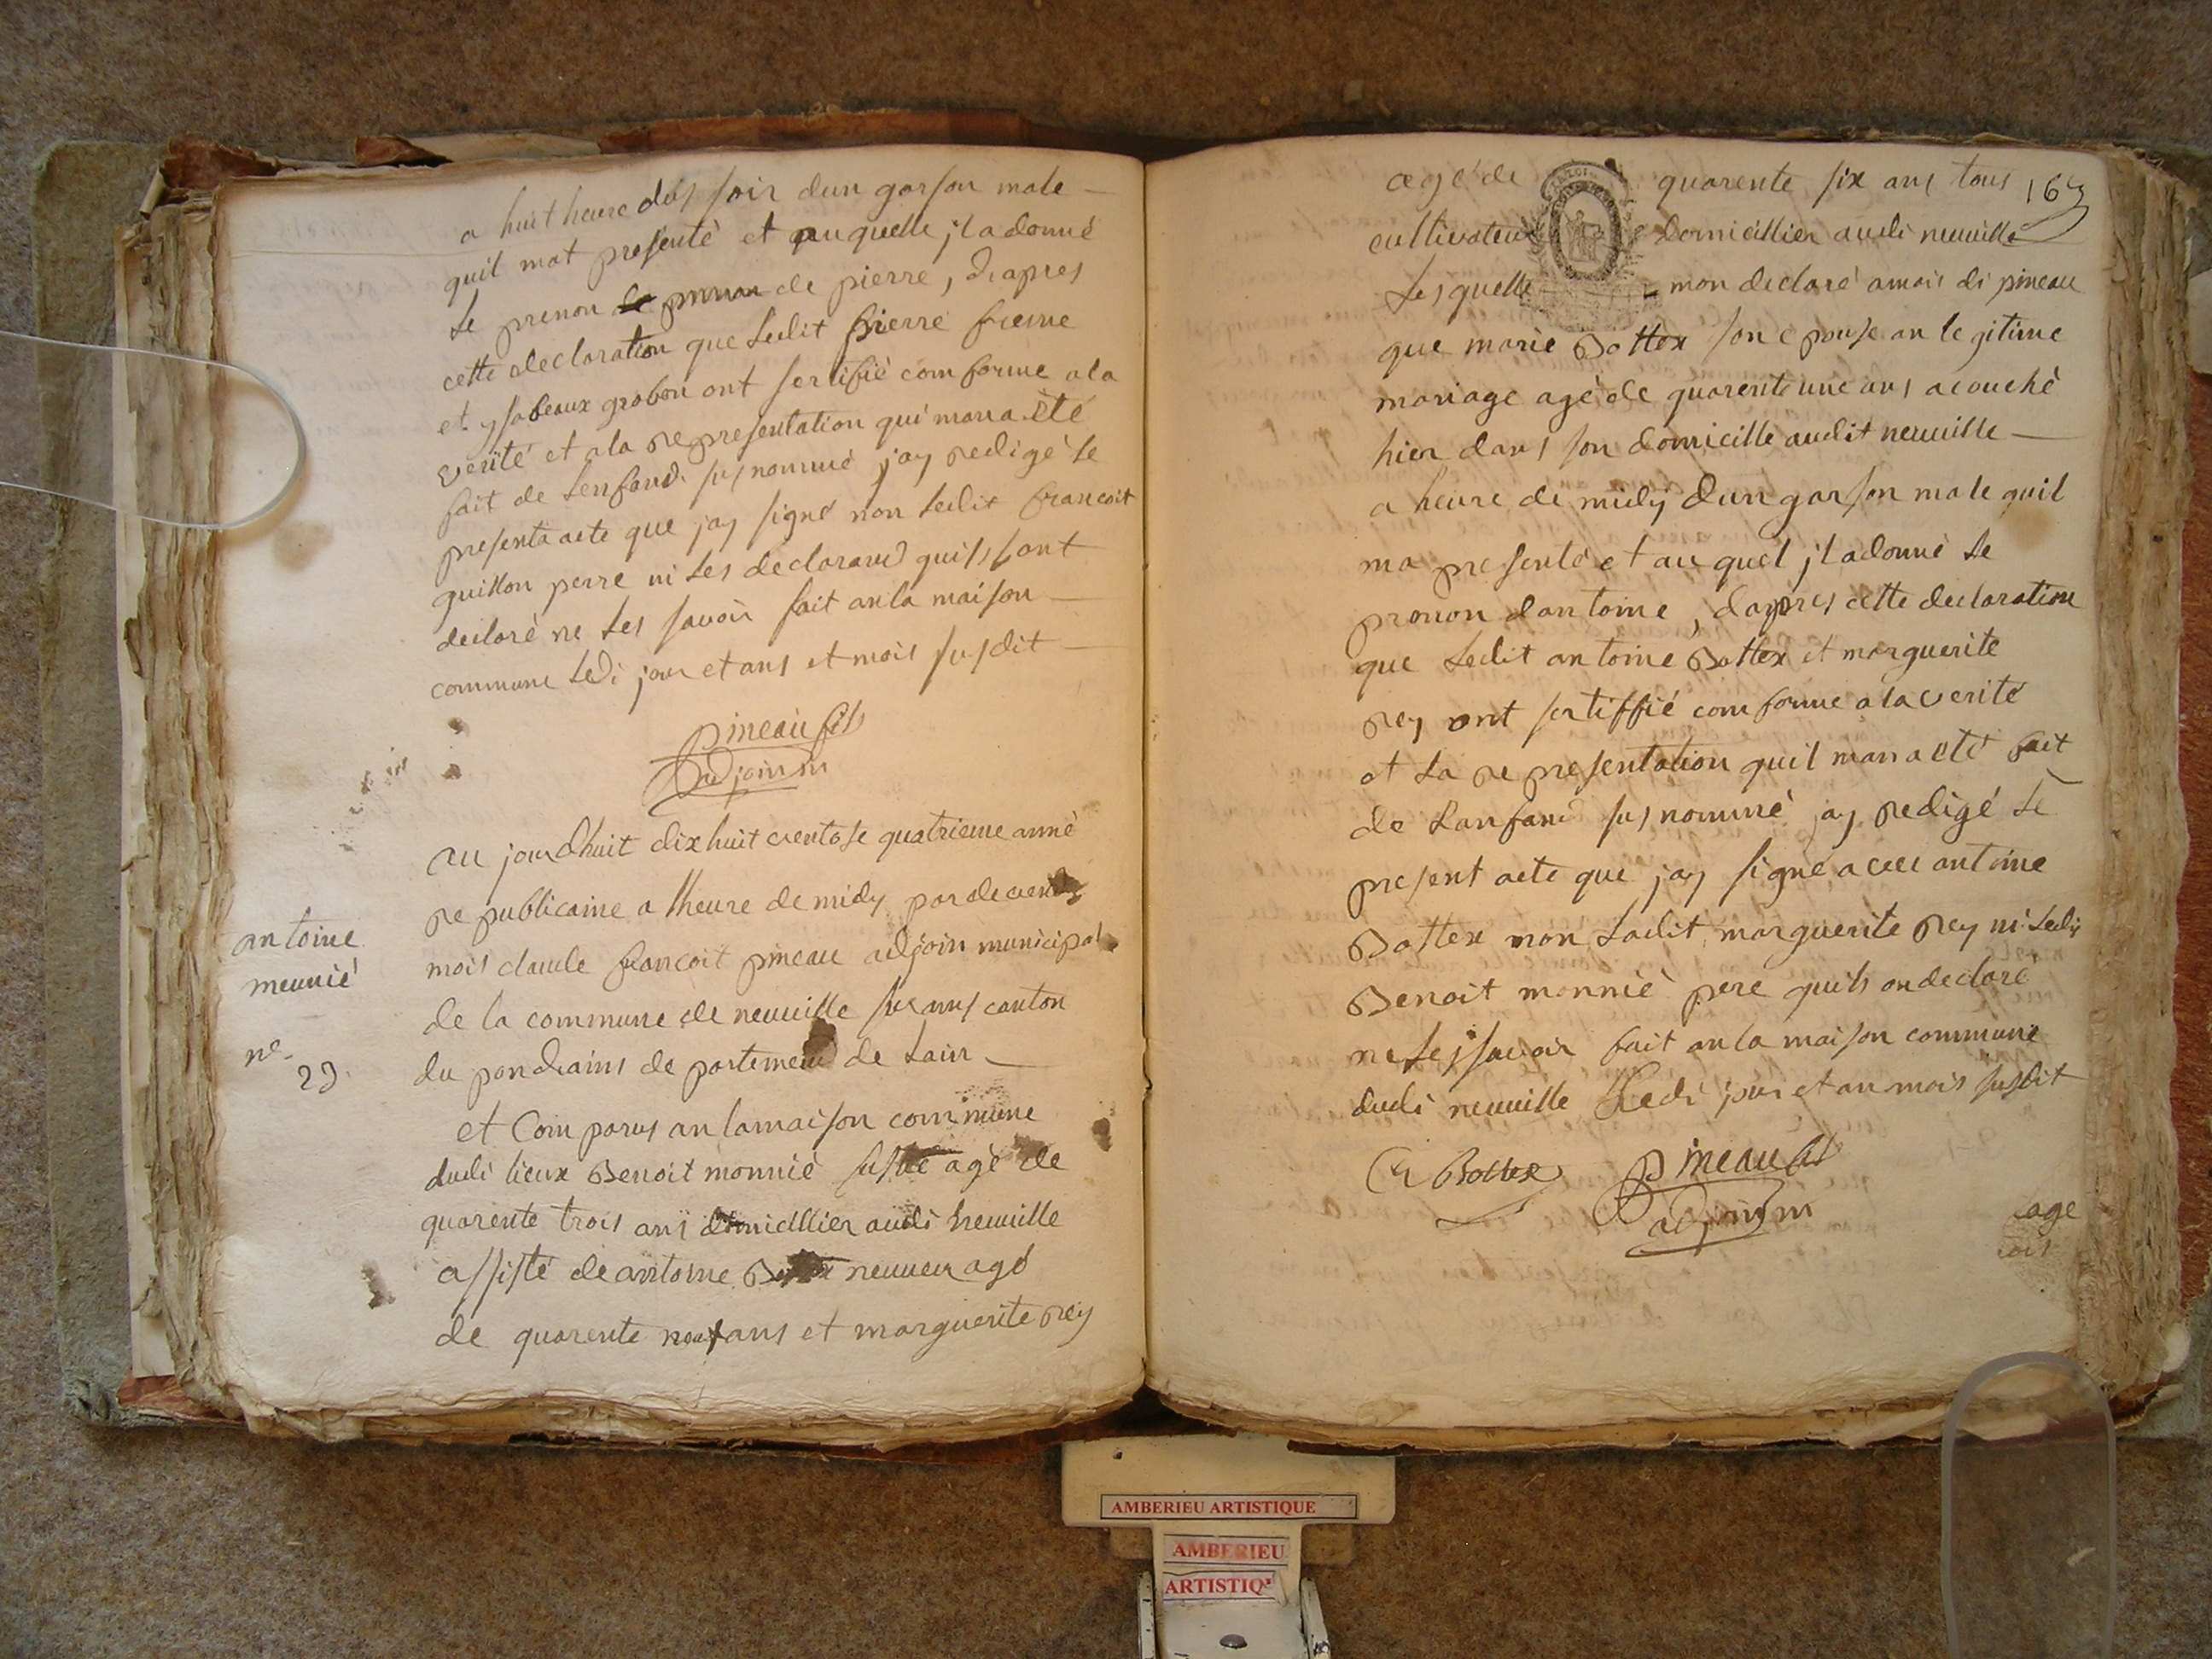 a huit heure du soir dun garson male
quil mat presenté et auquelle jl a donné
Le prenon de pierre, d'apres
cette declaration que Ledit pierre
et ysabeaux grobon ont sertifié comforme a la
verité et a la representation qui mana été
fait de Lenfand susnommé jay redigé Le
presenta acte que jay signé non Ledit francoit
guillon perre ni Les declarand quils sont
declaré ne Les savoir fait an la maison
commune Ledi jour et ans et mois susdit
pineau fils
adjoint m
antoine
meunié
no
23
au jourdhuit dix huit ventose quatrieme anné
republicaine a lheure de midy par devend
mois claude francoit pineau adjoin municipal
de la commune de neuville sur ains canton
du pondrains de partemend de Lain
et Comparus an la maison commune
dudi lieux Benoit monnié agé de
quarente trois ans domicillier audi neuville
assisté de antoine Bottex neuveu agé
de quarente neuf ans et marguerite rey
163
agé de quarente six ans tous
cultivateur domicillier audi neuville
Lesquelle mon declaré a mois di pineau
que marie Bottex son epouse an legitime
mariage agé de quarente une ans acouché
hier dans son domicille audit neuville
a heure de midy dun garson male quil
ma presenté et au quel jl a donné Le
pronon dantoine, dapres cette declaration
que Ledit antoine Bottex et marguerite
rey ont sertiffié comforme a la verité
et La representation quil mana été fait
de Lanfand susnommé jay redigé Le
present acte que jay signé avec antoine
Bottex non Ladit marguerite rey ni Ledi
Benoit monnié pere quils on declaré
ne Le savoir fait an la maison commune
dudi neuville Ledi jour et an mois susdit
Bottex pineau fils
adjoint m
age
AMBERIEU ARTISTIQUE
AMBERIEU
ARTISTIQ